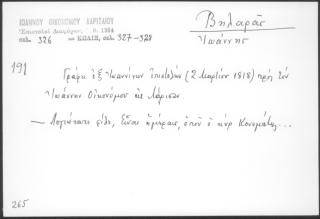 ΙΩΑΝΝΟΥ ΟΙΚΟΝΟΜΟΥ ΛΑΡΙΣΑΙΟΥ
Ἐπιστολαὶ Διαφόρων, 1964
σελ. 326 — ΚΩΔΙΞ, σελ. 327-328
Βηλαρᾶς
Ἰωάννης
191
Γράφει ἐξ Ἰωαννίνων ἐπιστολὴν (2 Μαρτίου 1818) πρὸς τὸν
Ἰωάννην Οἰκονόμου εἰς Λάρισαν.
— Λογιώτατε φίλε, Εἶναι ἡμέραις, ὁποῦ ὁ κὺρ Κονομάτης...
265